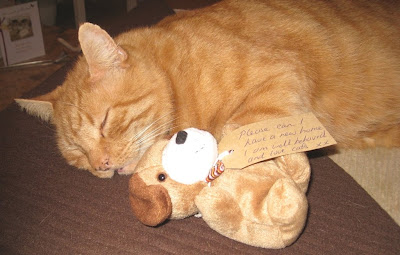 Please can I
have a new home
I am well behaved
and love cats xx